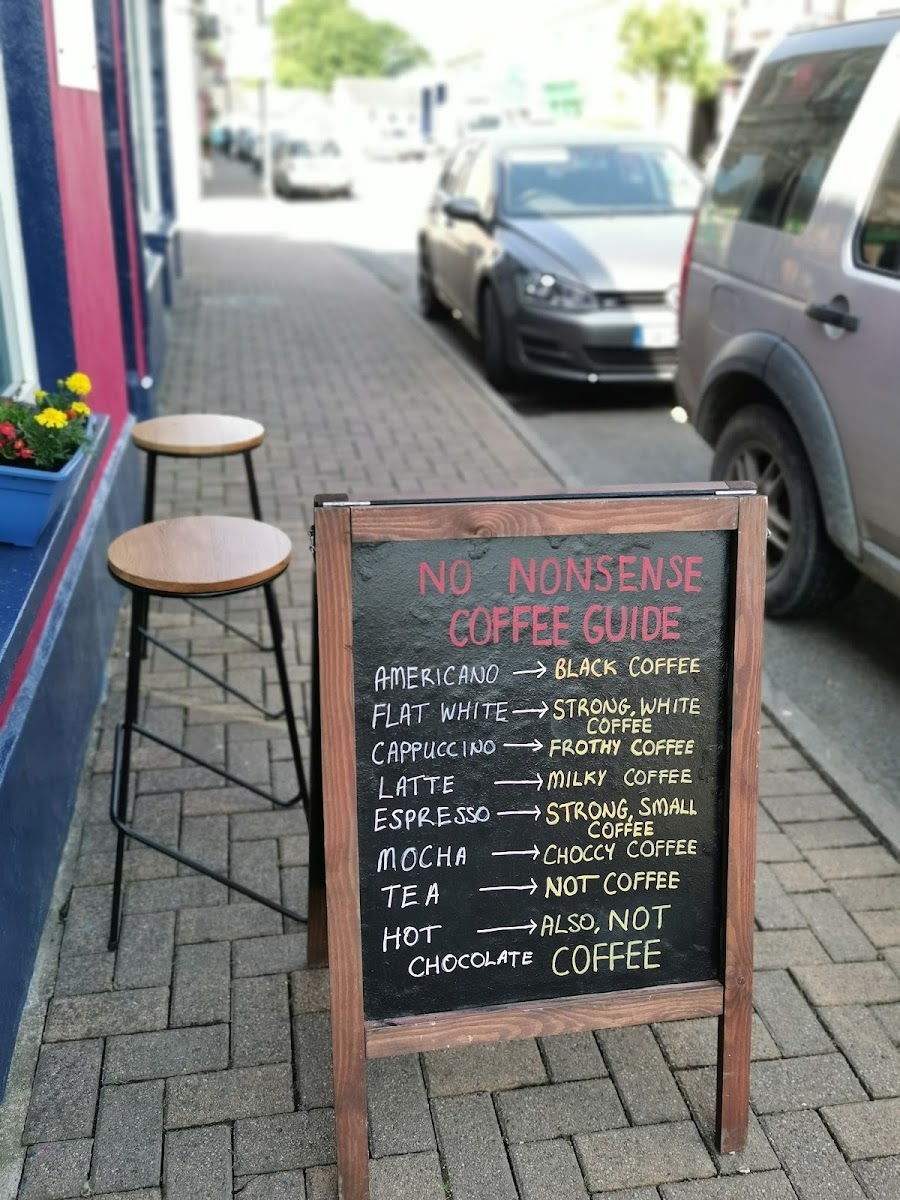 NO NONSENSE
COFFEE GUIDE
AMERICANO → BLACK COFFEE
FLAT WHITE → STRONG, WHITE
COFFEE
CAPPUCCINO → FROTHY COFFEE
LATTE → MILKY COFFEE
ESPRESSO → STRONG, SMALL
COFFEE
MOCHA → CHOCCY COFFEE
TEA → NOT COFFEE
HOT → ALSO, NOT
CHOCOLATE COFFEE